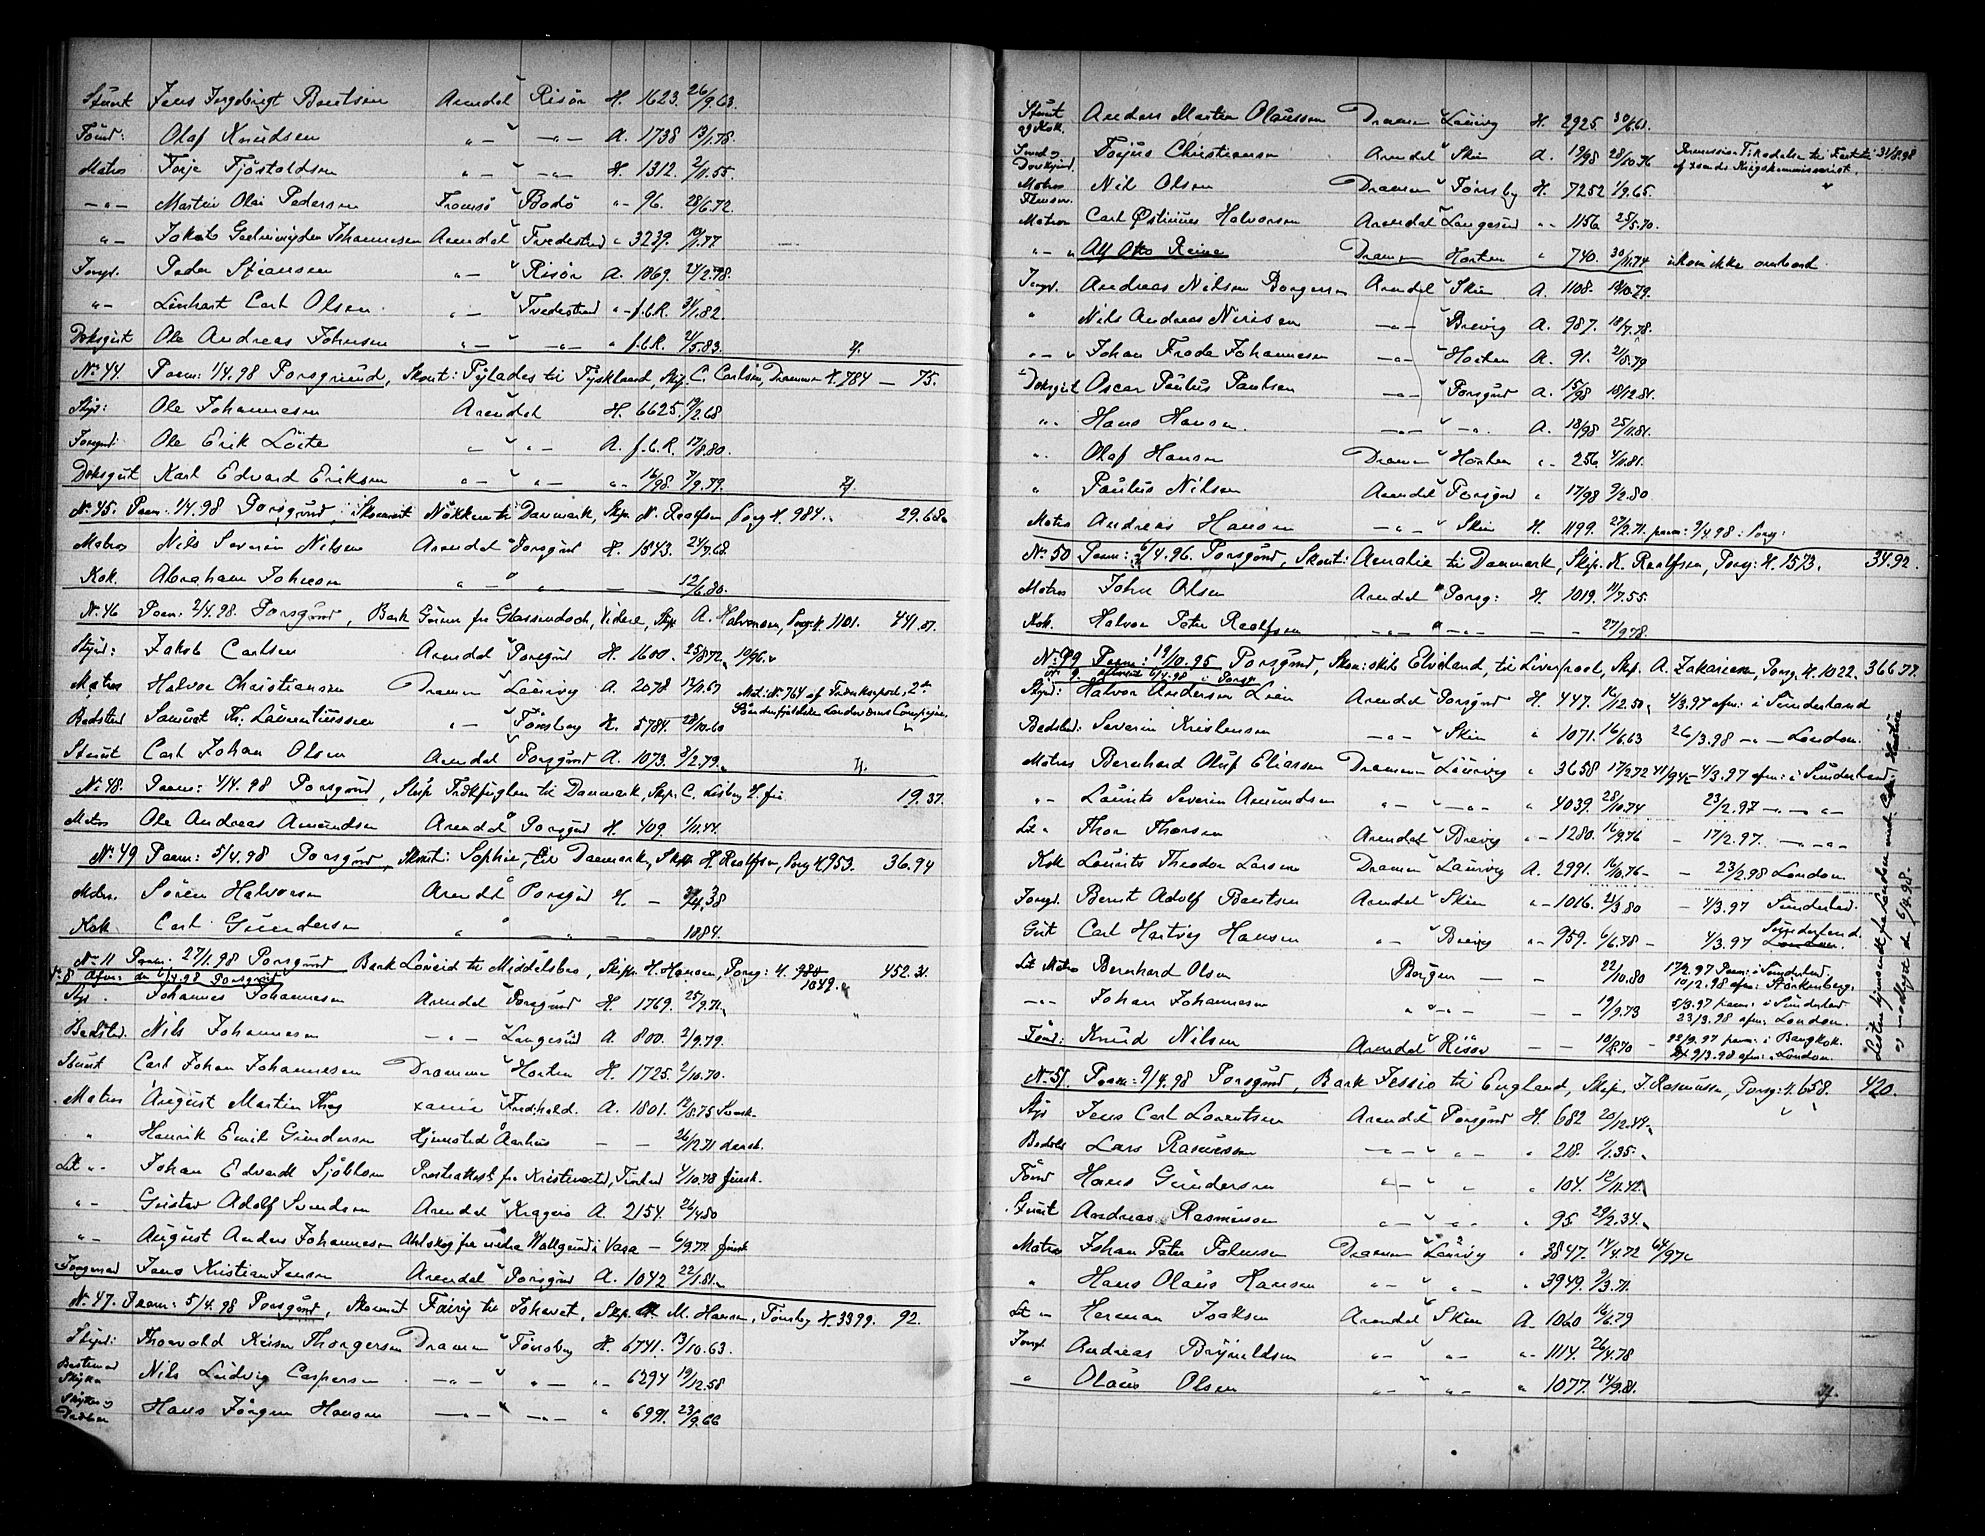 Stuert Jens Ingebrigt Bentsen Arendal Risör H. 1623. 26/9.63.
Tömd: Olaf Knudsen " — " A. 1738 13/1.78.
Matros Torje Tjöstoldsen " — " H. 1312. 2/11.55.
— " — Martin Olai Pedersen Tromsö Bodö " 96. 28/6.72.
" — Jakob Johannesen Arendal Tvedestrand " 3239.
Jungm. Peder Stiansen " — Risör A. 1869. 24/2.78.
" — Linhart Carl Olsen " — Tvedestrand " f.b.R. 31/1.82.
Doksgut Ole Andreas Johnsen " — " — " f.b.R. 2/5.83.
No 44. Paam: 1/4.98 Porsgrund, Skont: Pylades til Tyskland, Skip. C. Carlsen, Drammen H. 784 — 75.
Styr: Ole Johannesen Arendal H. 6625. 19/2.68
Jungmd: Ole Erik " — " A. f.b.R. 17/8.80.
Doksgut Karl Edvard Eriksen " — " " 16/98. 7/9.79.
No 45. Paam: 1/4.98 Porsgrund, Skonnert Nökken til Danmark, Skip. N. Realfsen Porsg. H. 984. 29.68
Matros Nils Severin Nilsen Arendal Porsgrund H. 1843. 24/7.68.
Kok. Abraham Johnsen " — " — 12/6.80.
No 46 Paam: 2/4.98. Porsgrund, Bark Grimm fra Glassondock, A. Halvorsen, Porsg. H. 1101. 441.07.
Styrd: Jakob Carlsen Arendal Porsgrund H. 1600. 25/8.72. 10/96.
Matros Halvor Christiansen Drammen Laurvig A. 2078 12/10.67 Met: No 764 af Frederiksværn, 2den
Bedstmd Samuel Th. Laurentiussen " — Tönsberg H. 5784. 28/10.60 Söndenfjeldske Landeværns Compagni.
Stuert Carl Johan Olsen Arendal Porsgrund A. 1073. 3/2.79.
No 48. Paam: 4/4.98 Porsgrund, Skip Trækfuglen til Danmark, Skip. C. Lisberg H. fri 19.37.
Matros Ole Andreas Amundsen Arendal Porsgrund H. 409. 1/11.44.
No 49 Paam: 5/4.98 Porsgrund, Skont: Sophie, til Danmark, Skip. H. Realfsen, Porsg. H. 953. 36.94
Matros. Sören Halvorsen Arendal Porsgrund H. —
Kok Carl Gundersen " " — 1884.
No 11 Paam: 27/1.98 Porsgrund Bark Loveid til Middelsbro, Skip. H. Hansen, Porsg: H. 980 1049. 452.31.
No 8 Afm: den 6/4.98 Porsgrund
Styr. Johannes Johannesen Arendal Porsgrund H. 1769. 25/9.72.
Bedstmd. Nils Johannesen — " — Langesund A. 800. 2/9.79.
Stuert Carl Johan Johannesen Drammen Horten H. 1725. 2/10.70.
Matros August Martin Thay xania Fredhald. A. 1801. 12/8.75 Svensk.
" Henrik Emil Gundersen Hjemsted Aarhus — — 26/12.71 dansk.
Let " Johan Edvardt Sjöblom Prestattest fra Kristinestad, Finland 4/10.78 finsk.
" — Gustav Adolf Svendsen Arendal Kragerö A. 2154. 26/4.80
" — August Anders Johannesen Ahlskog fra nedre Wallgrund i Vasa — 6/9.77 finsk
Jungmand Jens Kristian Jensen Arendal Porsgrund A. 1042. 22/1.81.
No 47. Paam: 5/4.98 Porsgrund, Skonnert Fairy til Skip. M. Hansen, Tönsberg H. 3399. 92.
Styrd: Thorvald Thorgersen Drammen Tönsberg H. 6741. 13/10.63.
Bestmand Skytter Nils Ludvig Caspersen — " — " — " 6294 19/12.58
Skytter og Hans Jörgen Hansen — " — " — " 6991. 23/9.66
Stuert og Kok. Anders Martin Olaussen Drammen Laurvig H. 2925. 30/6.61.
Torjus Christiansen Arendal Skien A. 19/98 28/10.76 31/3.98
Matros Nils Olsen Drammen Tönsberg H. 7252 1/9.65. af xsands Krigskommissariat.
Matros Carl Østinius Halvorsen Arendal Langesund " 1156 25/5.70.
" — " Alf Otto Reine Drammen Horten " 740. 30/11.74 ikom ikke ombord.
Jungd. Andreas Nilsen Borgersen Arendal Skien A. 1108. 19/10.79.
" Nils Andreas Nirisen — " — Brevig A. 987. 18/7.78.
" — " Johan Frode Johannesen — " — Horten A. 91. 2/8.79
Doksgut Oscar Paulus Paulsen — " — Porsgrund A. 15/98 18/12.81.
" . Hans Hansen. — " — " — . A. 18/98 25/11.81.
" . Olaf Hansen Drammen Horten " 256. 4/11.81.
" Paulus Nilsen Arendal Porsgrund " 17/98 9/2.80.
Matros Andreas Hansen — " — Skien H. 1199. 27/2.71. paam: 9/4.98 i Porsg:
No 50 Paam: 6/4.96 Porsgrund, Skont: Amalie til Danmark, Skip. K. Realfsen, Porsg: H. 1573. 34.92.
Matros John Olsen Arendal Porsg: H. 1019. 11/7.55.
Kok. Halvor Peter Realfsen — " — " — — — 27/9.78.
No 99 Paam: 19/10.95 Porsgrund, Skon: skib Elvsland til Liverpool, Skip. A Zakariasen, Porsg. H. 1022. 366.77.
No 9. afmönst 6/4.98 i Porsgr.
Styrd: Halvor Andersen Lien Arendal Porsgrund H. 447. 16/12.50. 4/3.97 afm: i Sunderland
Bedstmd: Severin Kristensen — " — Skien " 1071. 16/6.63 26/3.98 — " — London.
Matros Bernhard Oluf Eliassen Drammen Laurvig " 3658 17/2.72 41/94 — 4/3.97 afm: i Sunderland.
" — Laurits Severin Amundsen " — " — " 4039. 28/10.74 23/2.97 — " — "
Let " Thor Thorsen Arendal Brevig " 1280. 16/9.76 — 17/2.97. — " — "
Kok Laurits Theodor Larsen Drammen Laurvig A. 2991. 16/10.76 — — 23/2.98 London.
Jungd. Bernt Adolf Bentsen Arendal Skien " — 1016. 21/3.80 — 4/3.97 Sunderland.
Gut Carl Hartvig Hansen " — Brevig " 959. 6/6.78 — 4/3.97 Sunderland. London.
Let Matros Bernhard Olsen Bergen — — 22/10.80 17/2.97 Paam: i Sunderland. 10/2.98 afm: Störkenberg.
— " — Johan Johannesen " " — — — 19/9.73 5/3.97 paam: i Sunderland 23/3.98 afm: London.
Tömd: Knud Nilsen Arendal Risör — — 10/8.70 — 22/9.97 paam: i Bangkok. 9/3.98 afm: London.
Listen hjemsendt fra London med
og modtaget den 6/4.98.
No 51. Paam: 9/4.98 Porsgrund, Bark Jessie til England, Skip. J. Rasmussen, Porsg: H. 658. 420.
Styr Jens Carl Lorentsen Arendal Porsgrund H. 682 20/12.44.
Bedstmd Lars Rasmussen — " — " " 218. 7/1.35.
Tömd Hans Gundersen " — " " " 104. 12/11.42.
Stuert Andreas Rasmussen " — " " 95 29/2.34.
Matros Johan Peter Palmesen Drammen Laurvig " 3847. 14/4.72 64/97.
" Hans Olaus Hansen " — " " 3949. 9/3.71.
Let " Herman Isaksen Arendal Skien A. 1060 16/6.79
Jungd. Andreas Brynildsen " — " — " 1114. 26/4.78
" Olaus Olsen " — " — " 1077. 14/9.81.